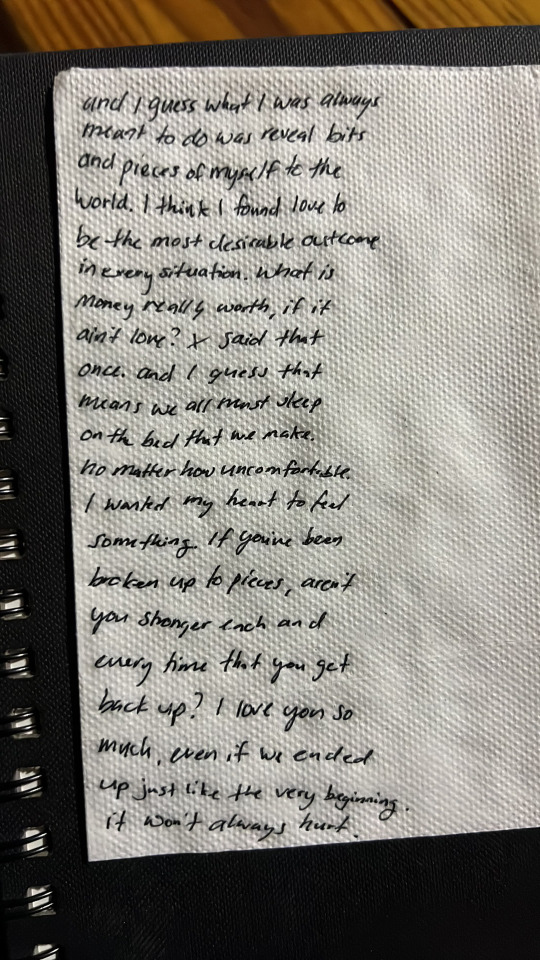 and I guess what I was always
meant to do was reveal bits
and pieces of myself to the
world. I think I found love to
be the most desirable outcome
in every situation. What is
money really worth, if it
ain't love? X said that
once. and I guess that
means we all must sleep
on the bed that we make.
no matter how uncomfortable.
I wanted my heart to feel
something. If you've been
broken up to pieces, aren't
you stronger each and
every time that you get
back up? I love you so
much, even if we ended
up just like the very beginning.
it won't always hurt.